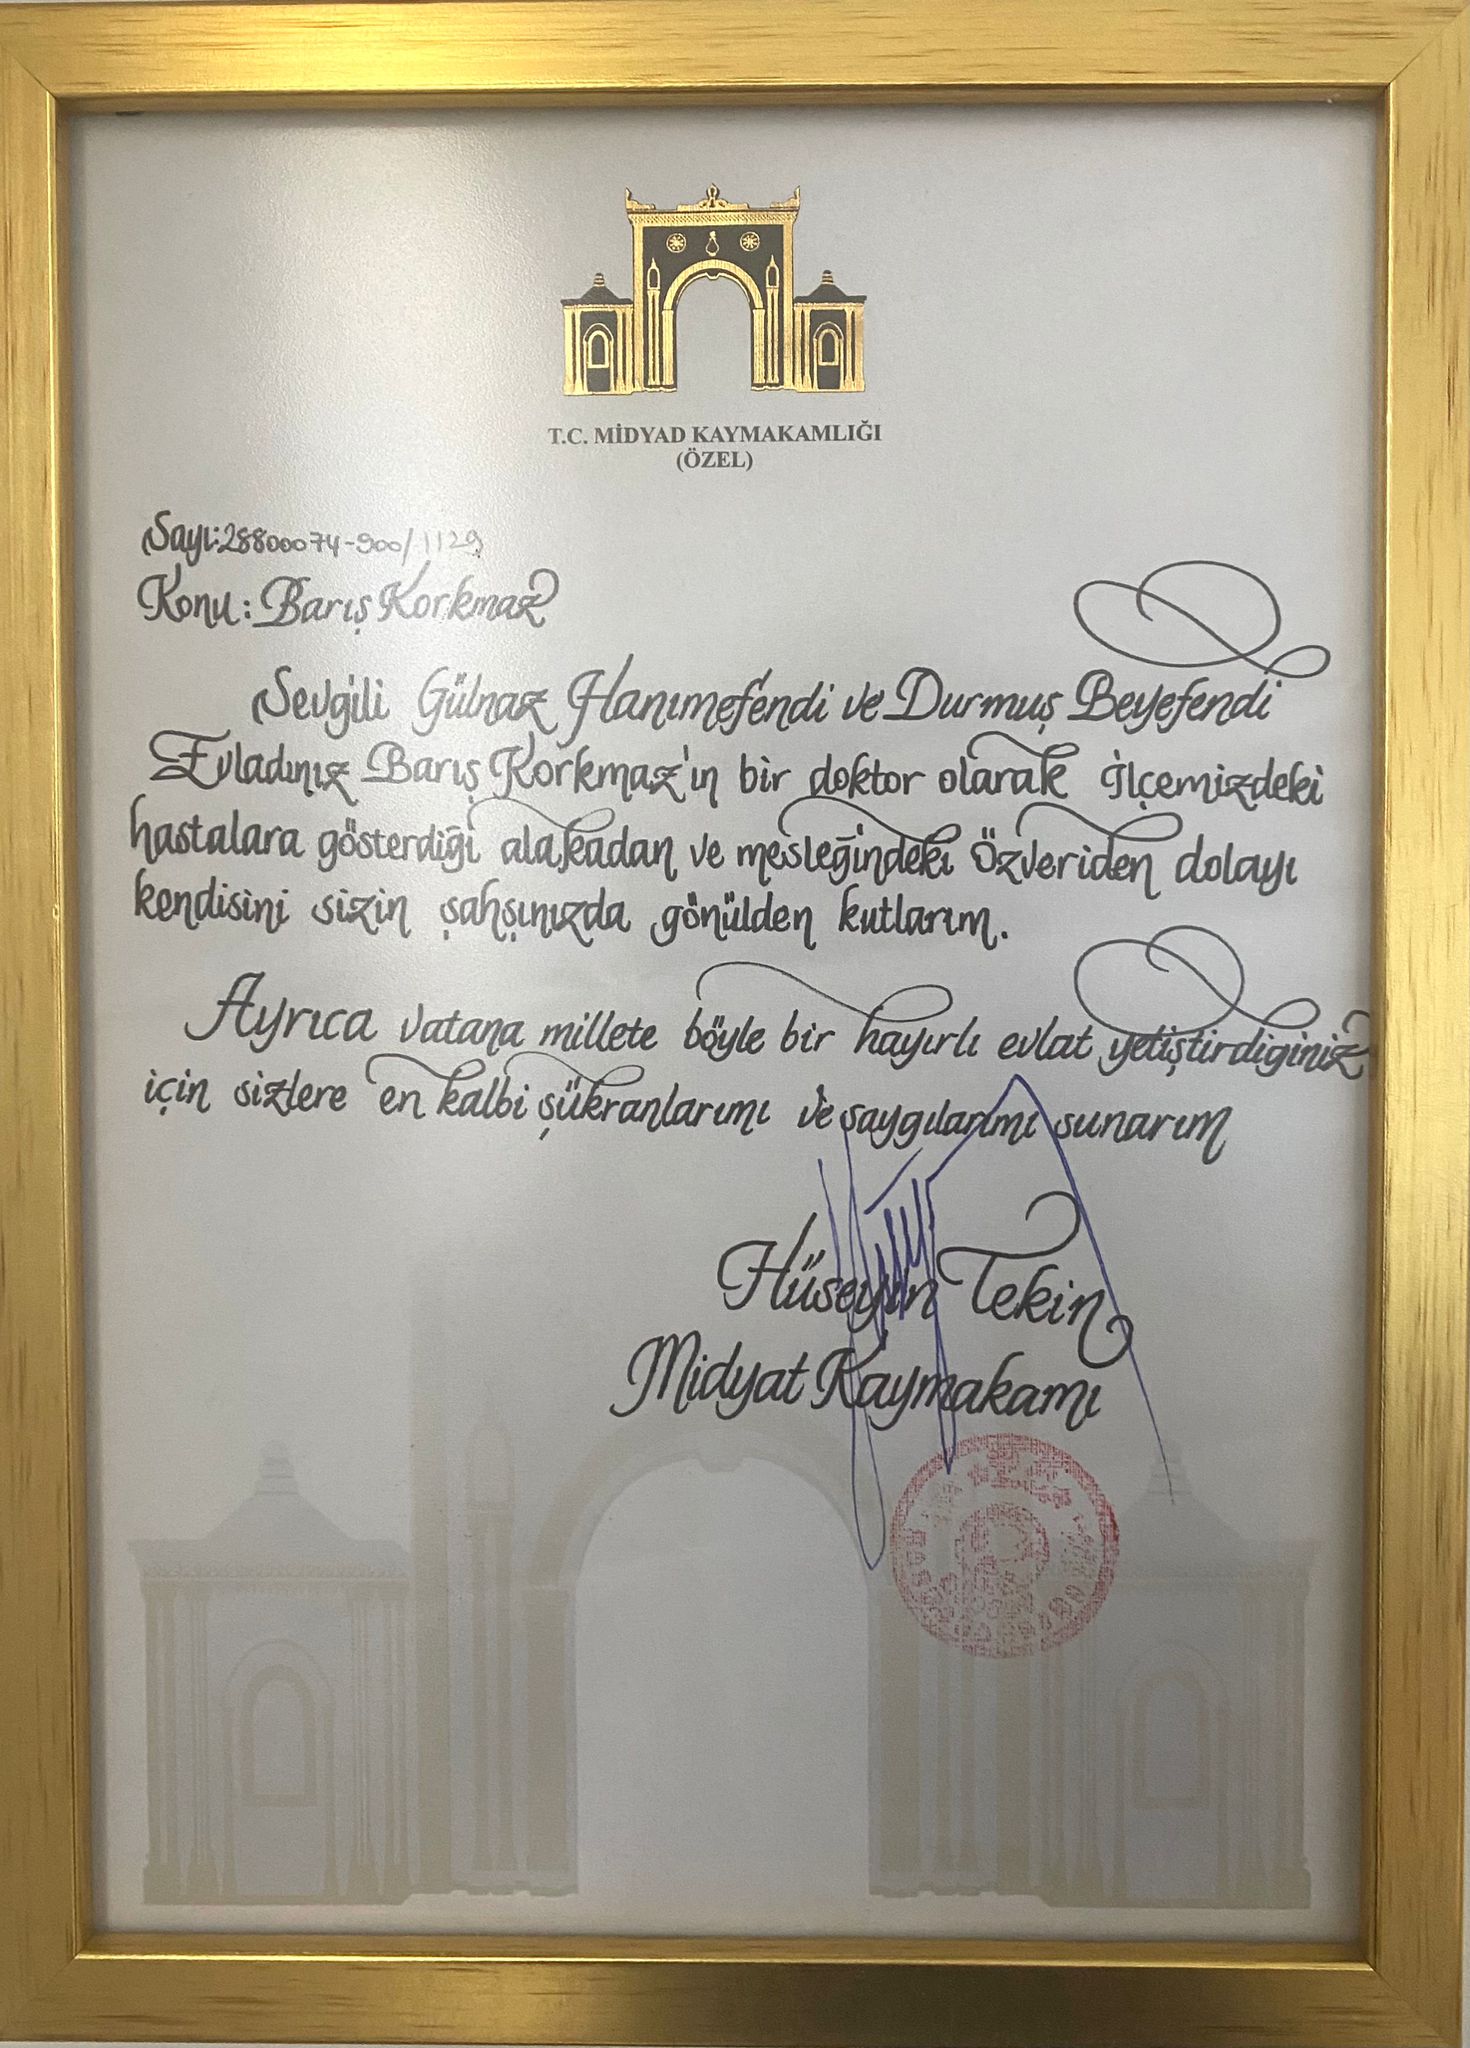 T.C. MİDYAD KAYMAKAMLIĞI
(ÖZEL)
Sayı:28800074-900/1129
Konu: Barış Korkmaz
Sevgili Gülnaz Hanımefendi ve Durmuş Beyefendi
Evladınız Barış Korkmaz'ın bir doktor olarak İlçemizdeki
hastalara gösterdiği alakadan ve mesleğindeki Özveriden dolayı
kendisini sizin şahşınızda gönülden kutlarım.
Ayrıca vatana millete böyle bir hayırlı evlat yetiştirdiginiz
için sizlere en kalbi şükranlarımı ve saygılarımı sunarım
Hüseyin Tekin
Midyat Kaymakamı